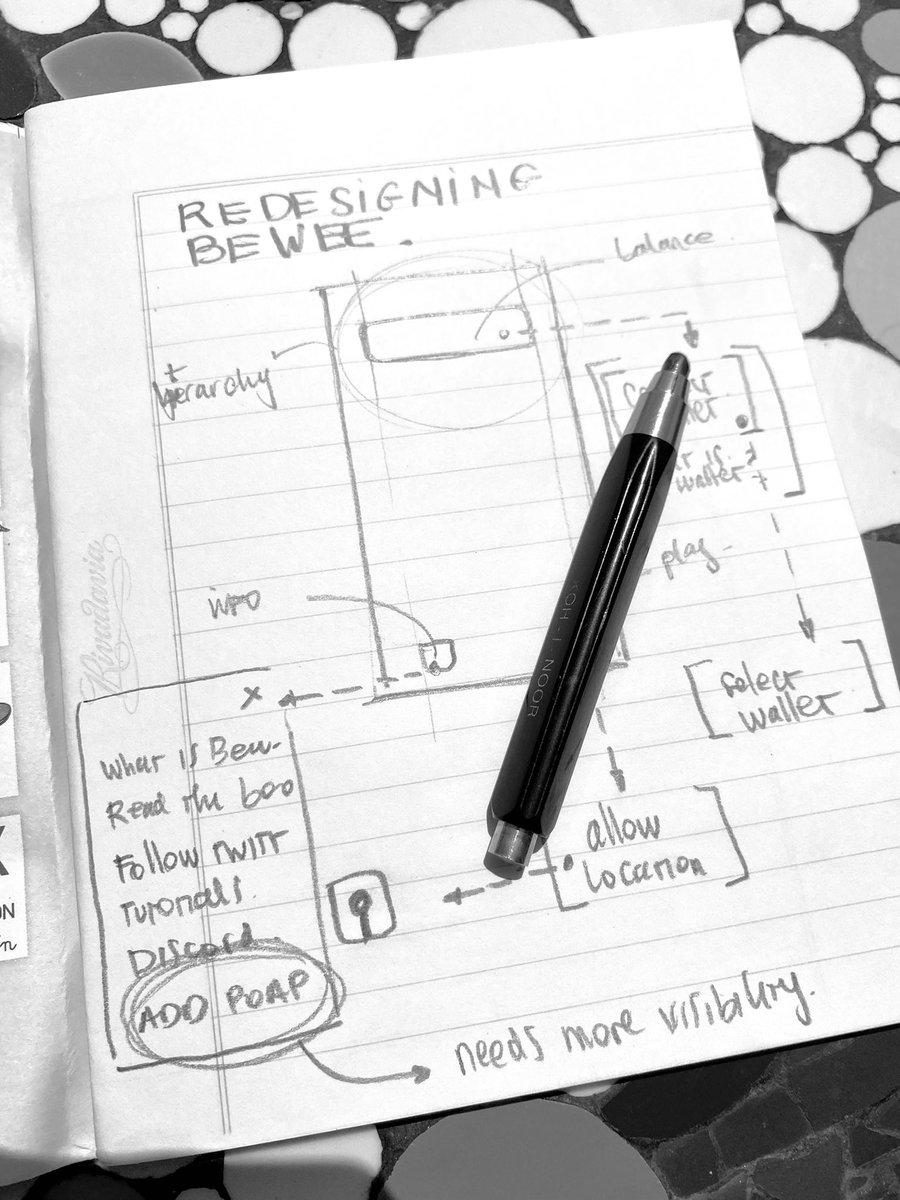 REDESIGNING
BEWEE.
balance.
+
hierarchy
wallet +
play-
INFO
select
wallet
x
What is Bew-
Read the boo
Follow TWITT
Tutorials.
Discord.
ADD POAP
allow
location
needs more visibility.
Rivadavia
KOH-I-NOOR
X
ON
in